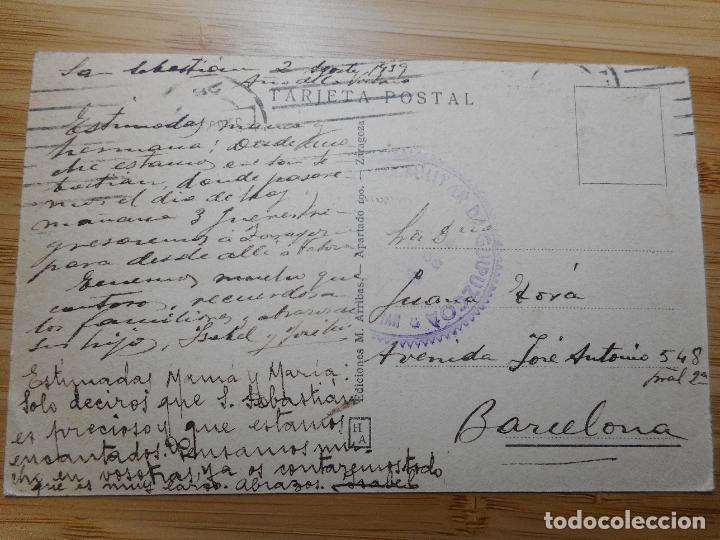 San Sebastián 2 Agosto 1939
Año de la Victoria
TARJETA POSTAL
Estimadas mamá y
hermana: Desde
estamos en San Se-
bastián, donde pasare-
mos el día de hoy,
mañana 3
gresaremos á Zaragoza
para desde allí á
Tenemos mucho que
contaros, recuerdos a
los familiares y abrazos de
su hijo, Isabel y
Estimadas Mamá y María:
Solo deciros que S. Sebastián
es precioso y que estamos
encantados. Pensamos mu-
cho en vosotras, ya os contaremos todo
que es muy largo. Abrazos. Isabel
Ediciones M. Arribas. - Apartado 190. - Zaragoza
H
A
MILITAR DE GUIPUZCOA
La Sra
Juana Zorá
Avenida José Antonio 548
pral 2ª
Barcelona
todocoleccion.net